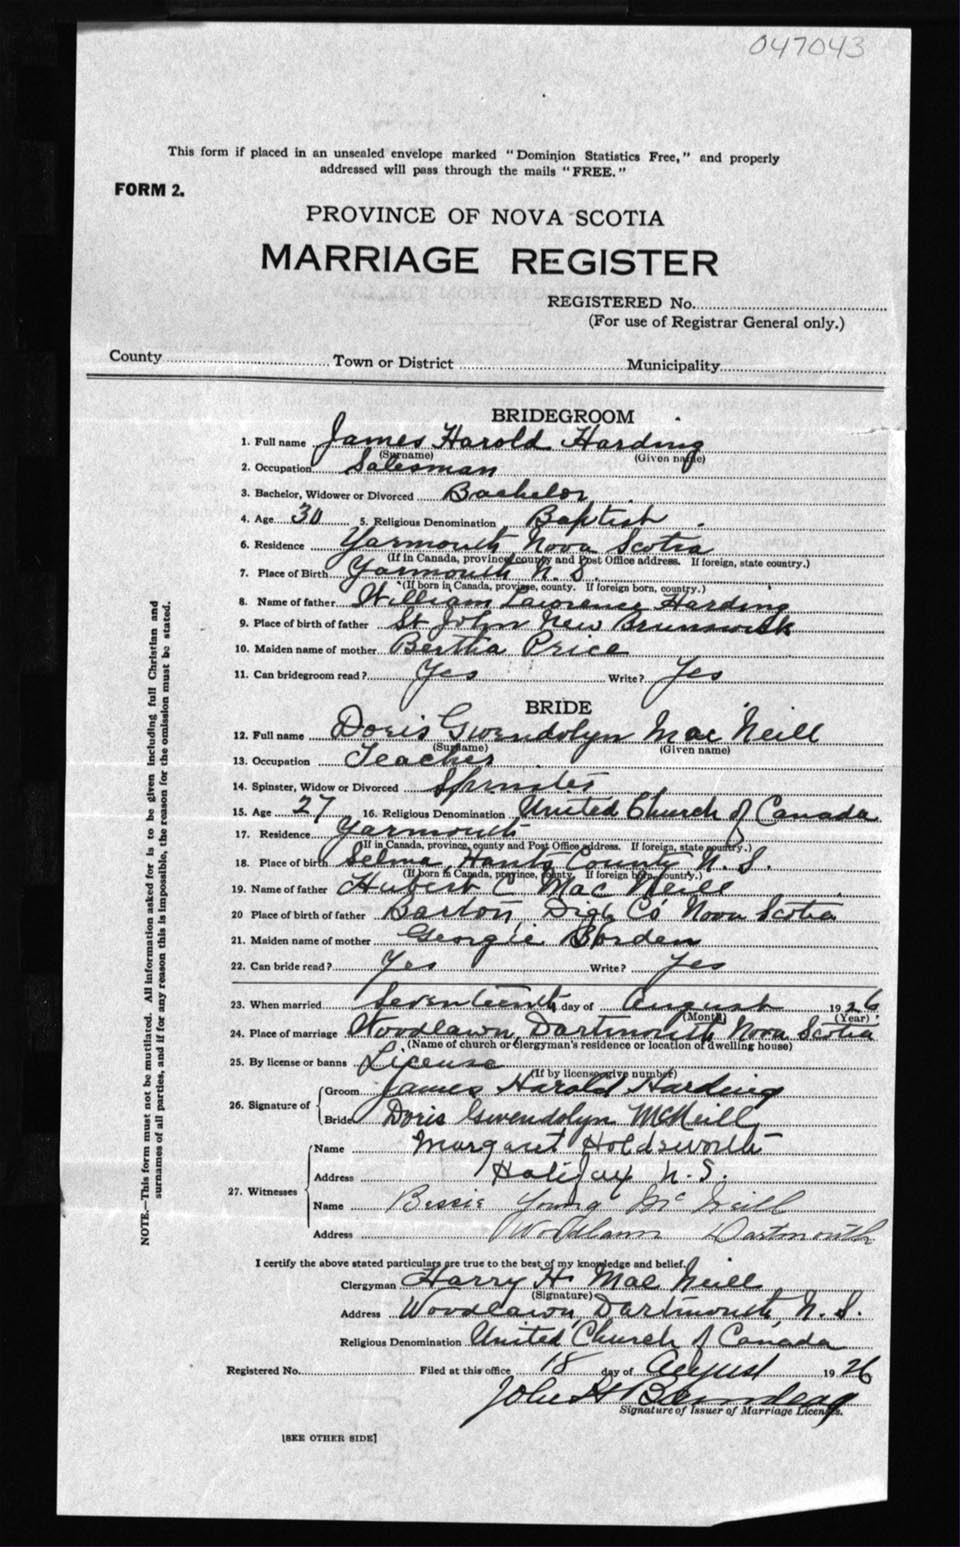 047043
This form if placed in an unsealed envelope marked "Dominion Statistics Free," and properly
addressed will pass through the mails "FREE."
FORM 2.
PROVINCE OF NOVA SCOTIA
MARRIAGE REGISTER
REGISTERED No.
(For use of Registrar General only.)
County Town or District Municipality
BRIDEGROOM
1. Full name James Harold Harding
(Surname) (Given name)
2. Occupation Salesman
3. Bachelor, Widower or Divorced Bachelor
4. Age 30 5. Religious Denomination Baptist
6. Residence Yarmouth Nova Scotia
(If in Canada, province, county and Post Office address. If foreign, state country.)
7. Place of Birth Yarmouth N. S.
(If born in Canada, province, county. If foreign born, country.)
8. Name of father William Lawrence Harding
9. Place of birth of father St John New Brunswick
10. Maiden name of mother Bertha Price
11. Can bridegroom read? Yes Write? Yes
BRIDE
12. Full name Doris Gwendolyn Mac Neill
(Surname) (Given name)
13. Occupation Teacher
14. Spinster, Widow or Divorced Spinster
15. Age 27 16. Religious Denomination United Church of Canada
17. Residence Yarmouth
(If in Canada, province, county and Post Office address. If foreign, state country.)
18. Place of birth Selma, Hants County N. S.
(If born in Canada, province, county. If foreign born, country.)
19. Name of father Hubert C Mac Neill
20 Place of birth of father Barton, Digby Co Nova Scotia
21. Maiden name of mother Georgie Borden
22. Can bride read? Yes Write? Yes
23. When married Seventeenth day of August 1926
(Month) (Year)
24. Place of marriage Woodlawn, Dartmouth Nova Scotia
(Name of church or Clergyman's residence or location of dwelling house)
25. By license or banns License
(If by license give number)
26. Signature of Groom James Harold Harding
Bride Doris Gwendolyn McNeill
27. Witnesses Name Margaret Holdsworth
Address Halifax N. S.
Name Bessie Young McNeill
Address Woodlawn Dartmouth
I certify the above stated particulars are true to the best of my knowledge and belief.
Clergyman Harry H. Mac Neill
(Signature)
Address Woodlawn, Dartmouth, N. S.
Religious Denomination United Church of Canada
Registered No. Filed at this office 18 day of August 1926
John H
Signature of Issuer of Marriage Licenses.
[SEE OTHER SIDE]
NOTE.—This form must not be mutilated. All information asked for is to be given including full Christian and
surnames of all parties, and if for any reason this is impossible, the reason for the omission must be stated.